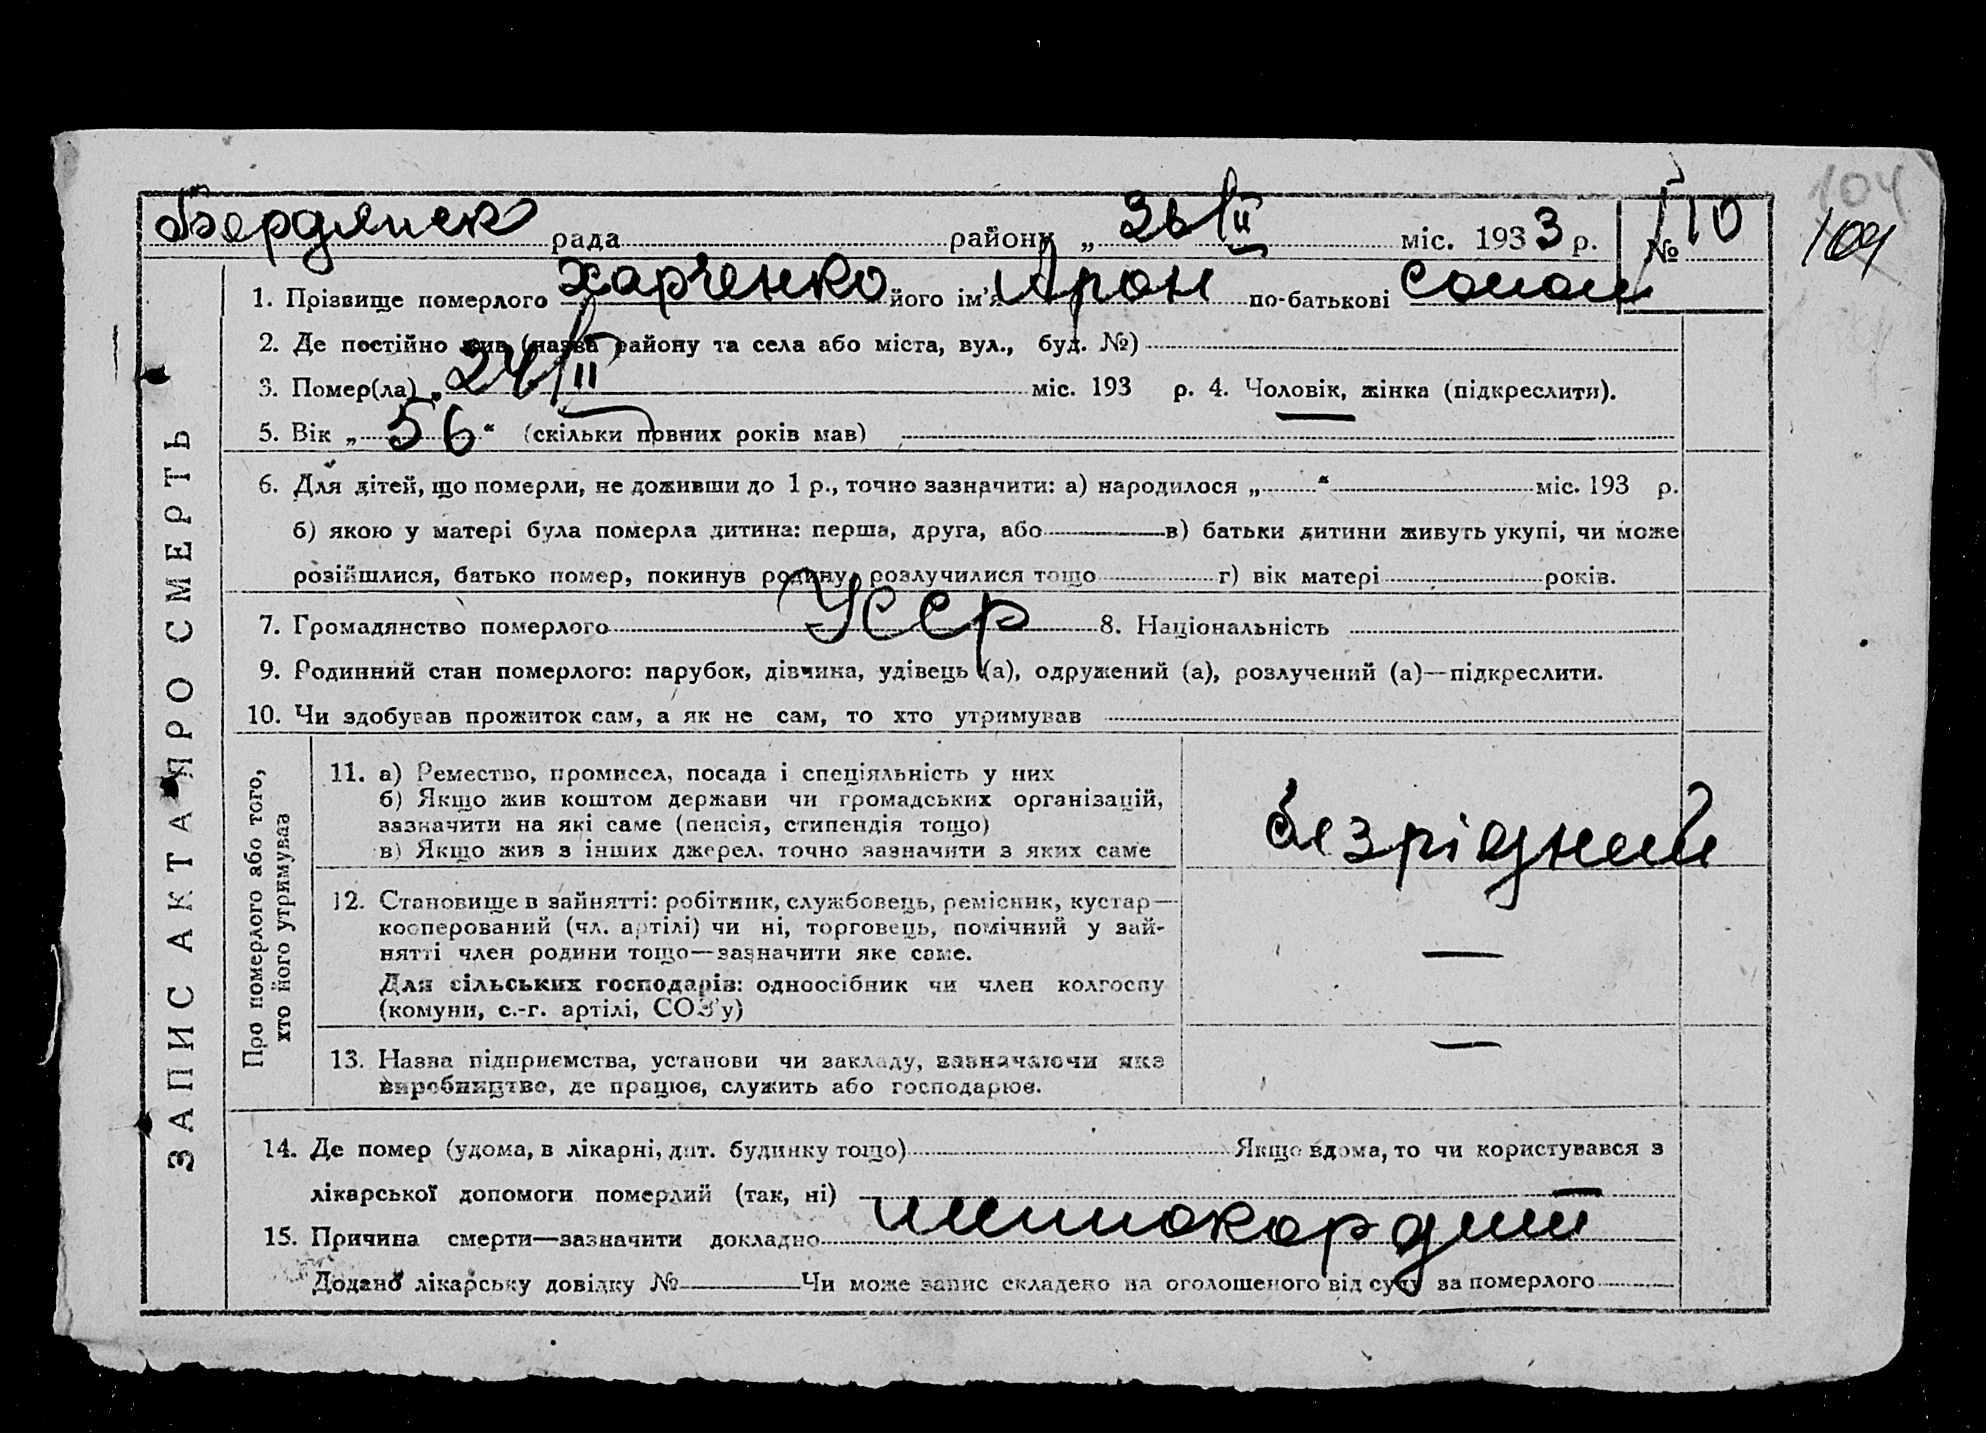 104
Бердянск рада районy „ 26/II міс. 1933 р. № 110
104
1. Прізвище померлого Харченко його ім'я Арон по-батькові
2. Де постійно жив (назва району та села або міста, вул., буд. №)
3. Помер(ла) „ 24/II міс. 193 р. 4. Чоловік, жінка (підкреслити).
5. Вік „ 56 “ (скільки повних років мав)
6. Для дітей, що померли, не доживши до 1 р., точно зазначити: а) народилося „ “ міс. 193 р.
б) якою у матері була померла дитина: перша, друга, або в) батьки дитини живуть укупі, чи може
розійшлися, батько помер, покинув родину, розлучилися тощо г) вік матері років.
7. Громадянство померлого УССР 8. Національність
9. Родинний стан померлого: парубок, дівчина, удівець (а), одружений (а), розлучений (а)—підкреслити.
10. Чи здобував прожиток сам, а як не сам, то хто утримував
ЗАПИС АКТА ПРО СМЕРТЬ
Про померлого або того,
хто його утримував
11. а) Ремество, промисел, посада і спеціяльність у них
б) Якщо жив коштом держави чи громадських організацій,
зазначити на які саме (пенсія, стипендія тощо)
в) Якщо жив з інших джерел, точно зазначити з яких саме
безрідний
12. Становище в зайнятті: робітник, службовець, ремісник, кустар—
кооперований (чл. артілі) чи ні, торговець, помічний у зай-
нятті член родини тощо—зазначити яке саме. —
Для сільських господарів: одноосібник чи член колгоспу
(комуни, с.-г. артілі, СОЗ'у)
13. Назва підприємства, установи чи закладу, зазначаючи яке —
виробництво, де працює, служить або господарює.
14. Де помер (удома, в лікарні, дит. будинку тощо) Якщо вдома, то чи користувався з
лікарської допомоги померлий (так, ні) —
15. Причина смерти—зазначити докладно
Додано лікарську довідку № Чи може запис складено на оголошеного від суду за померлого